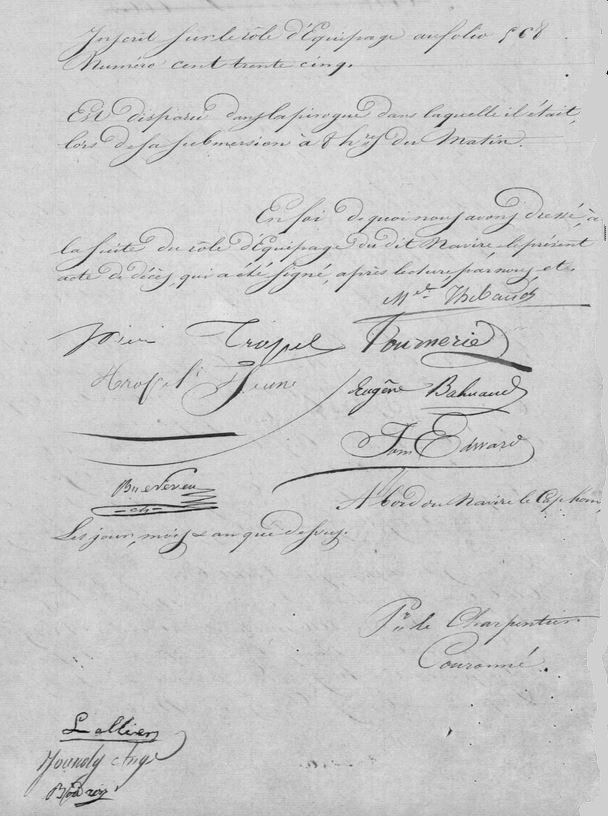 Inscrit sur le rôle d'Equipage au folio 508
Numéro cent trente cinq.
Est disparu dans la pirogue dans laquelle il était,
lors de sa submersion à 8 hres du Matin.
En foi de quoi nous avons dressé, à
la suite du rôle d'Equipage du dit Navire, le présent
acte de décès, qui a été signé, après lecture par nous et
Thibaud
Fournerie
Jeune
Eugène Bahuaud
Tom Edward
A bord du Navire le Cap horn,
Les jour, mois & an que dessus.
Pre le Charpentier
Couronné.
Lallier
Ange